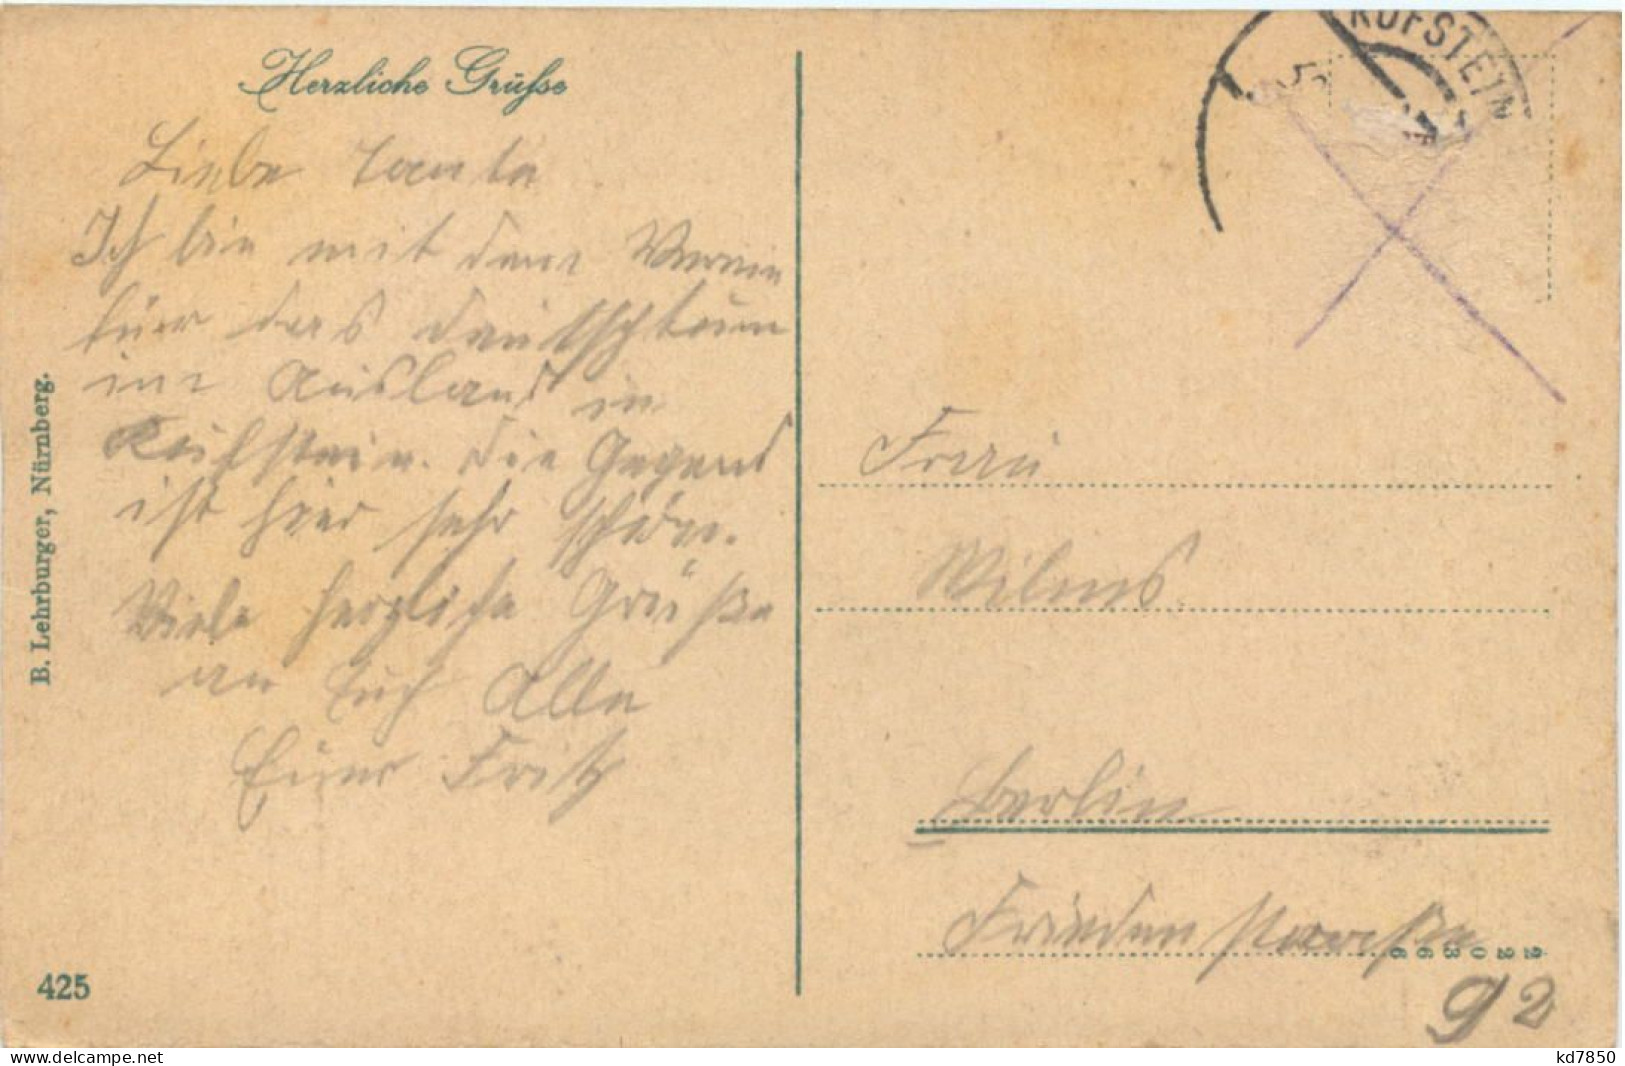 Herzliche Grüße
Liebe Tante
Ich bin mit dem Verein
für das Deutschtum
im Ausland in
Kufstein. Die Gegend
ist hier sehr schön.
Viele herzliche Grüße
an Euch Alle
Euer Fritz
B. Lehrburger, Nürnberg.
425
KUFSTEIN
Frau
Wilms
Berlin
Friedenstraße
2220366
92
kd7850
www.delcampe.net